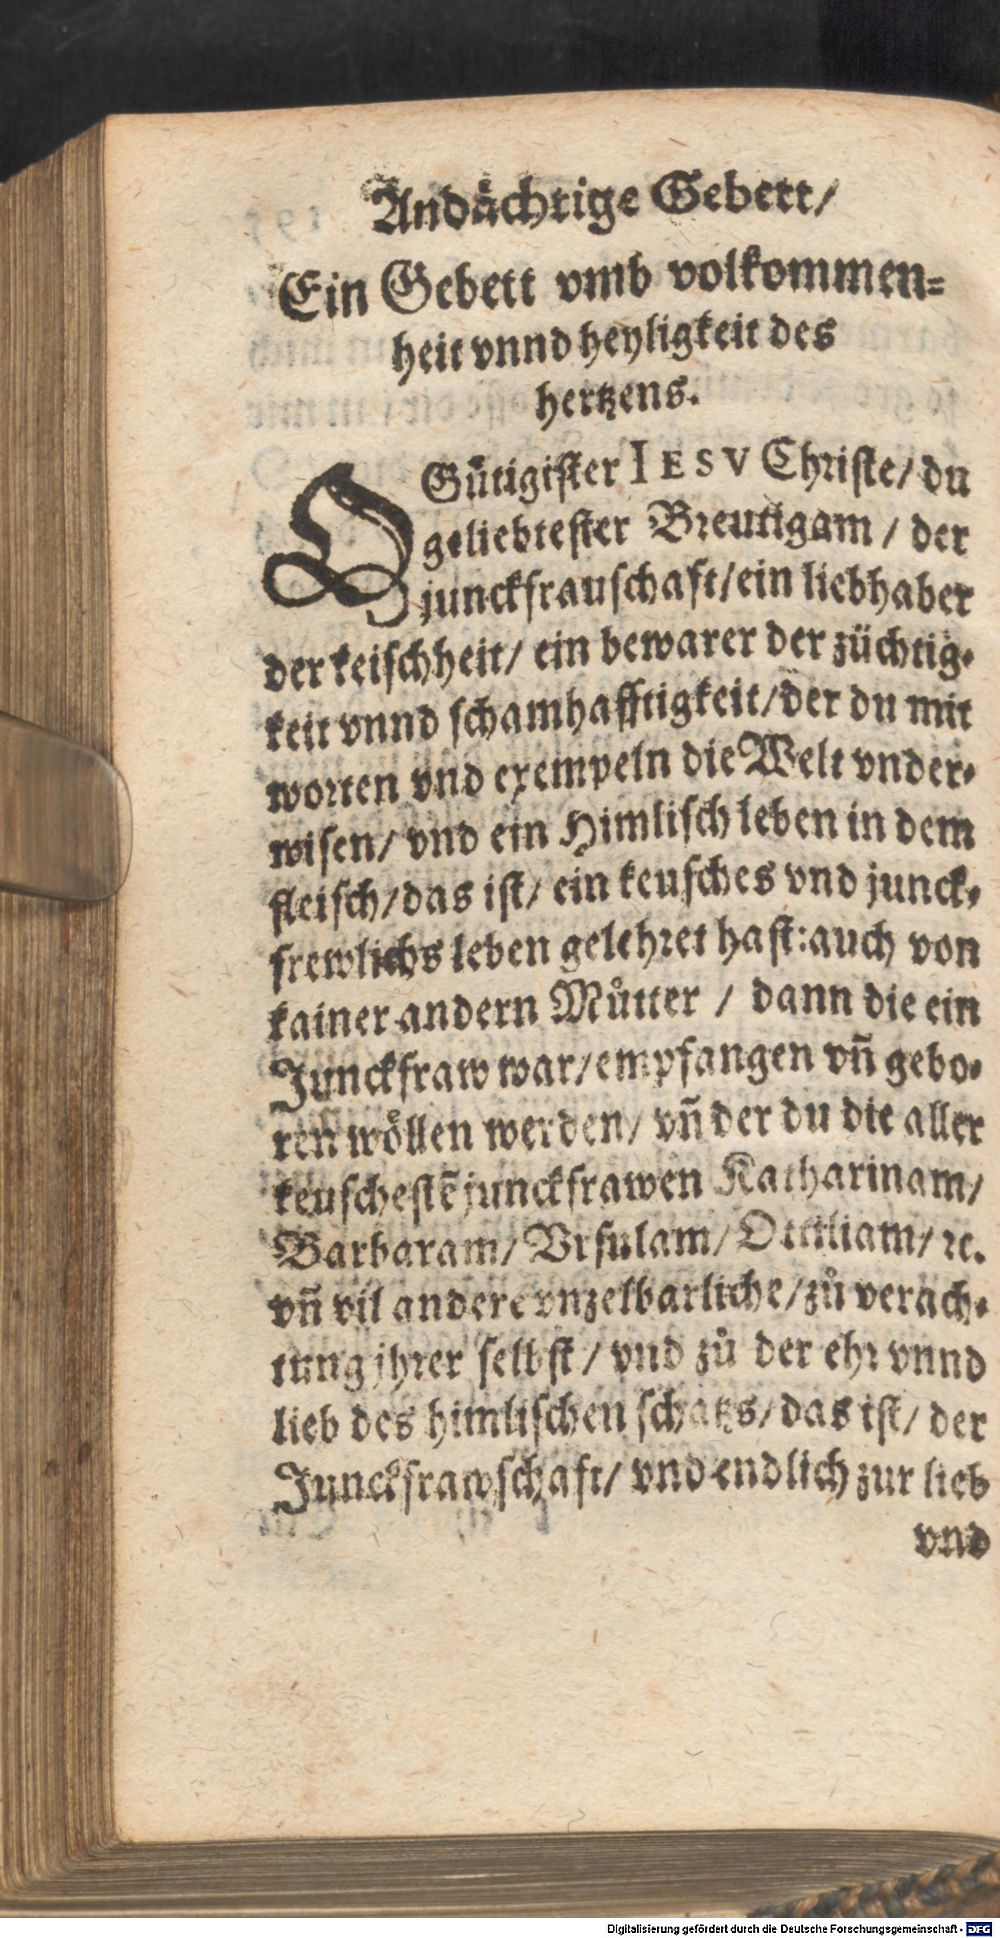 Andaͤchtige Gebett/
Ein Gebett vmb volkommen⸗
heit vnnd heyligkeit des
hertzens.
O Guͤtigister IESV Christe/ du
geliebtester Breutigam / der
junckfrauschaft/ein liebhaber
der keischheit/ ein bewarer der züchtig⸗
keit vnnd schamhafftigkeit/der du mit
worten vnd exempeln die Welt vnder⸗
wisen/ vnd ein Himlisch leben in dem
fleisch/das ist/ ein keusches vnd junck⸗
frewlichs leben gelehret hast:auch von
kainer andern Muͦtter / dann die ein
Junckfraw war/empfangen vñ gebo⸗
ren woͤllen werden/ vñ der du die aller
keuschestẽ junckfrawen Katharinam/
Barbaram/ Vrsulam/ Ottiliam/ ꝛc.
vñ vil andere vnzelbarliche/zuͦ verach⸗
tung jhrer selbst / vnd zuͦ der ehr vnnd
lieb des himlischen schatzs/das ist/ der
Junckfrawschaft/ vnd endlich zur lieb
vnd
Digitalisierung gefördert durch die Deutsche Forschungsgemeinschaft - DFG